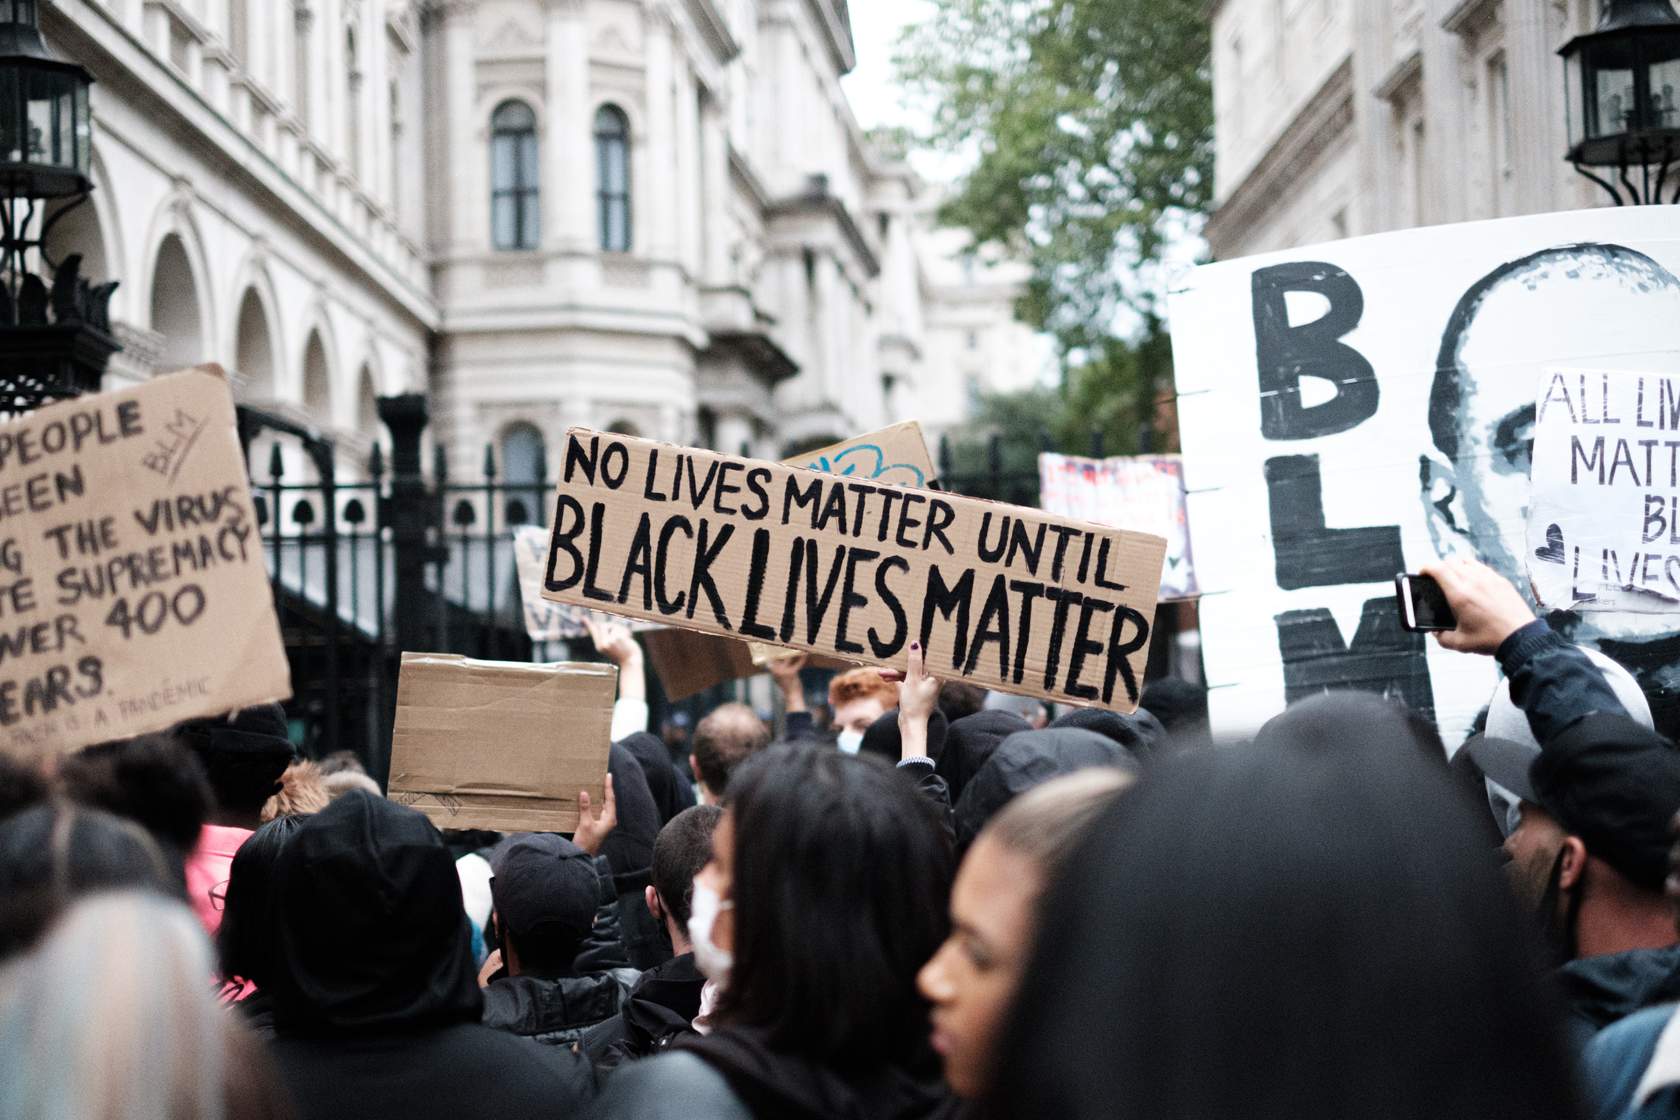 PEOPLE
BEEN
BLM
THE VIRUS
SUPREMACY
OVER 400
YEARS.
A PANDEMIC
NO LIVES MATTER UNTIL
BLACK LIVES MATTER
B
L
M
ALL LIV
MATT
BL
LIVES